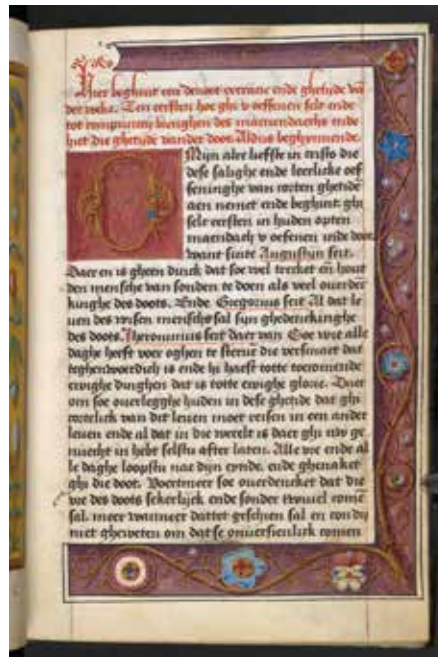 Hier beghint een deuoet oeffeninc ende ghetide vā
der weke. Ten eersten hoe ghi v oeffenen selt ende
tot compuncty brenghen des maenendaechs ende
het die ghetijde vander doot. Aldus beghinnende.
O Mijn alre liefste in cristo die
dese salighe ende leerlicke oef
feninghe van corten ghetide
aen nemet ende beghint ghi
selt eersten in huden opten
maendach v oefenen inde doot
want sinte Augustijn seit.
Daer en is gheen dinck dat soe wel trecket eñ hout
den mensche van sonden te doen als veel ouerden
kinghe des doots. Ende Gregorius seit Al dat le
uen des wisen menschs sal sijn ghedenckinghe
des doots. Jheronimus seit daer van Soe wie alle
daghe heeft voer oghen te steruē die versmaet dat
teghenwoerdich is ende hi haest totte toecomende
ewighe dinghen dat is totte ewighe glorie. Daer
om soe ouerlegghe huden in dese ghetide dat ghi
cortelick van dit leuen moet reisen in een ander
leuen ende al dat in die werelt is daer ghi uw ge
nuecht in hebt selstu after laten. Alle vre ende al
le daghe loopstu nae dijn eynde. ende ghenaket
ghi die doot. Voertmeer soe ouerdencket dat die
vre des doots sekerlijck ende sonder twiuel comē
sal. meer wanneer dattet geschien sal en condi
niet gheweten om dat se onuersienlick comen